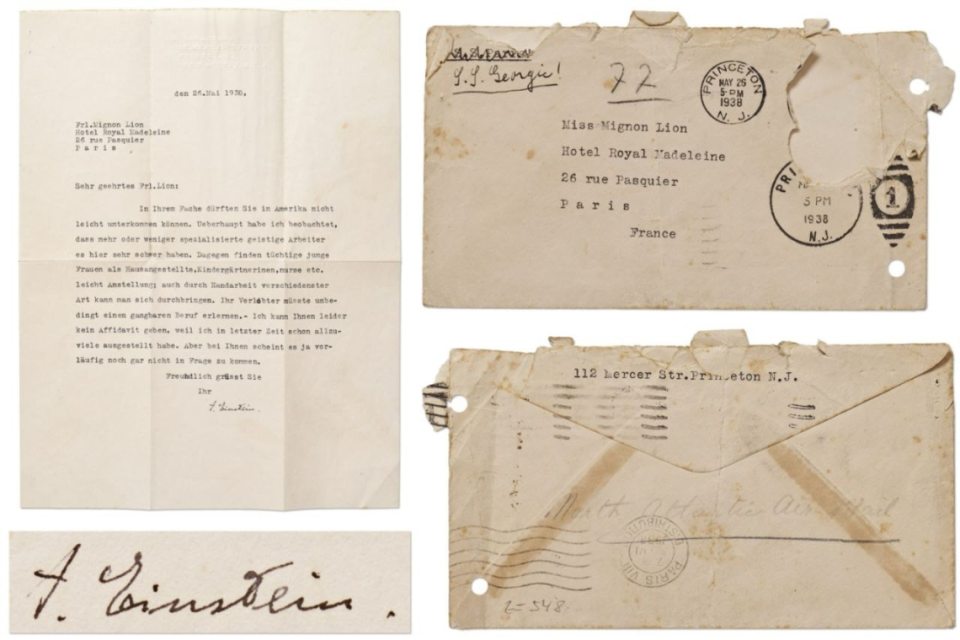 den 26.Mai 1938.
Frl.Mignon Lion
Hotel Royal Madeleine
26 rue Pasquier
P a r i s .
Sehr geehrtes Frl.Lion:
In Ihrem Fache dürften Sie in Amerika nicht
leicht unterkommen können. Ueberhaupt habe ich beobachtet,
dass mehr oder weniger spezialisierte geistige Arbeiter
es hier sehr schwer haben. Dagegen finden tüchtige junge
Frauen als Hausangestellte,Kindergärtnerinen,nurse etc.
leicht Anstellung; auch durch Handarbeit verschiedenster
Art kann man sich durchbringen. Ihr Verlobter müsste unbe-
dingt einen gangbaren Beruf erlernen.- Ich kann Ihnen leider
kein Affidavit geben, weil ich in letzter Zeit schon allzu-
viele ausgestellt habe. Aber bei Ihnen scheint es ja vor-
läufig noch gar nicht in Frage zu kommen.
Freundlich grüsst Sie
Ihr
A. Einstein.
A. Einstein.
S.S. Georgic!
72
PRINCETON
MAY 26
5-PM
1938
N. J.
Miss Mignon Lion
Hotel Royal Madeleine
26 rue Pasquier
P a r i s
France
PRI
5 PM
1938
N.J.
1
112 Mercer Str.Princeton N.J.
North Atlantic Air Mail
PARIS VIII
DISTRIBUTION